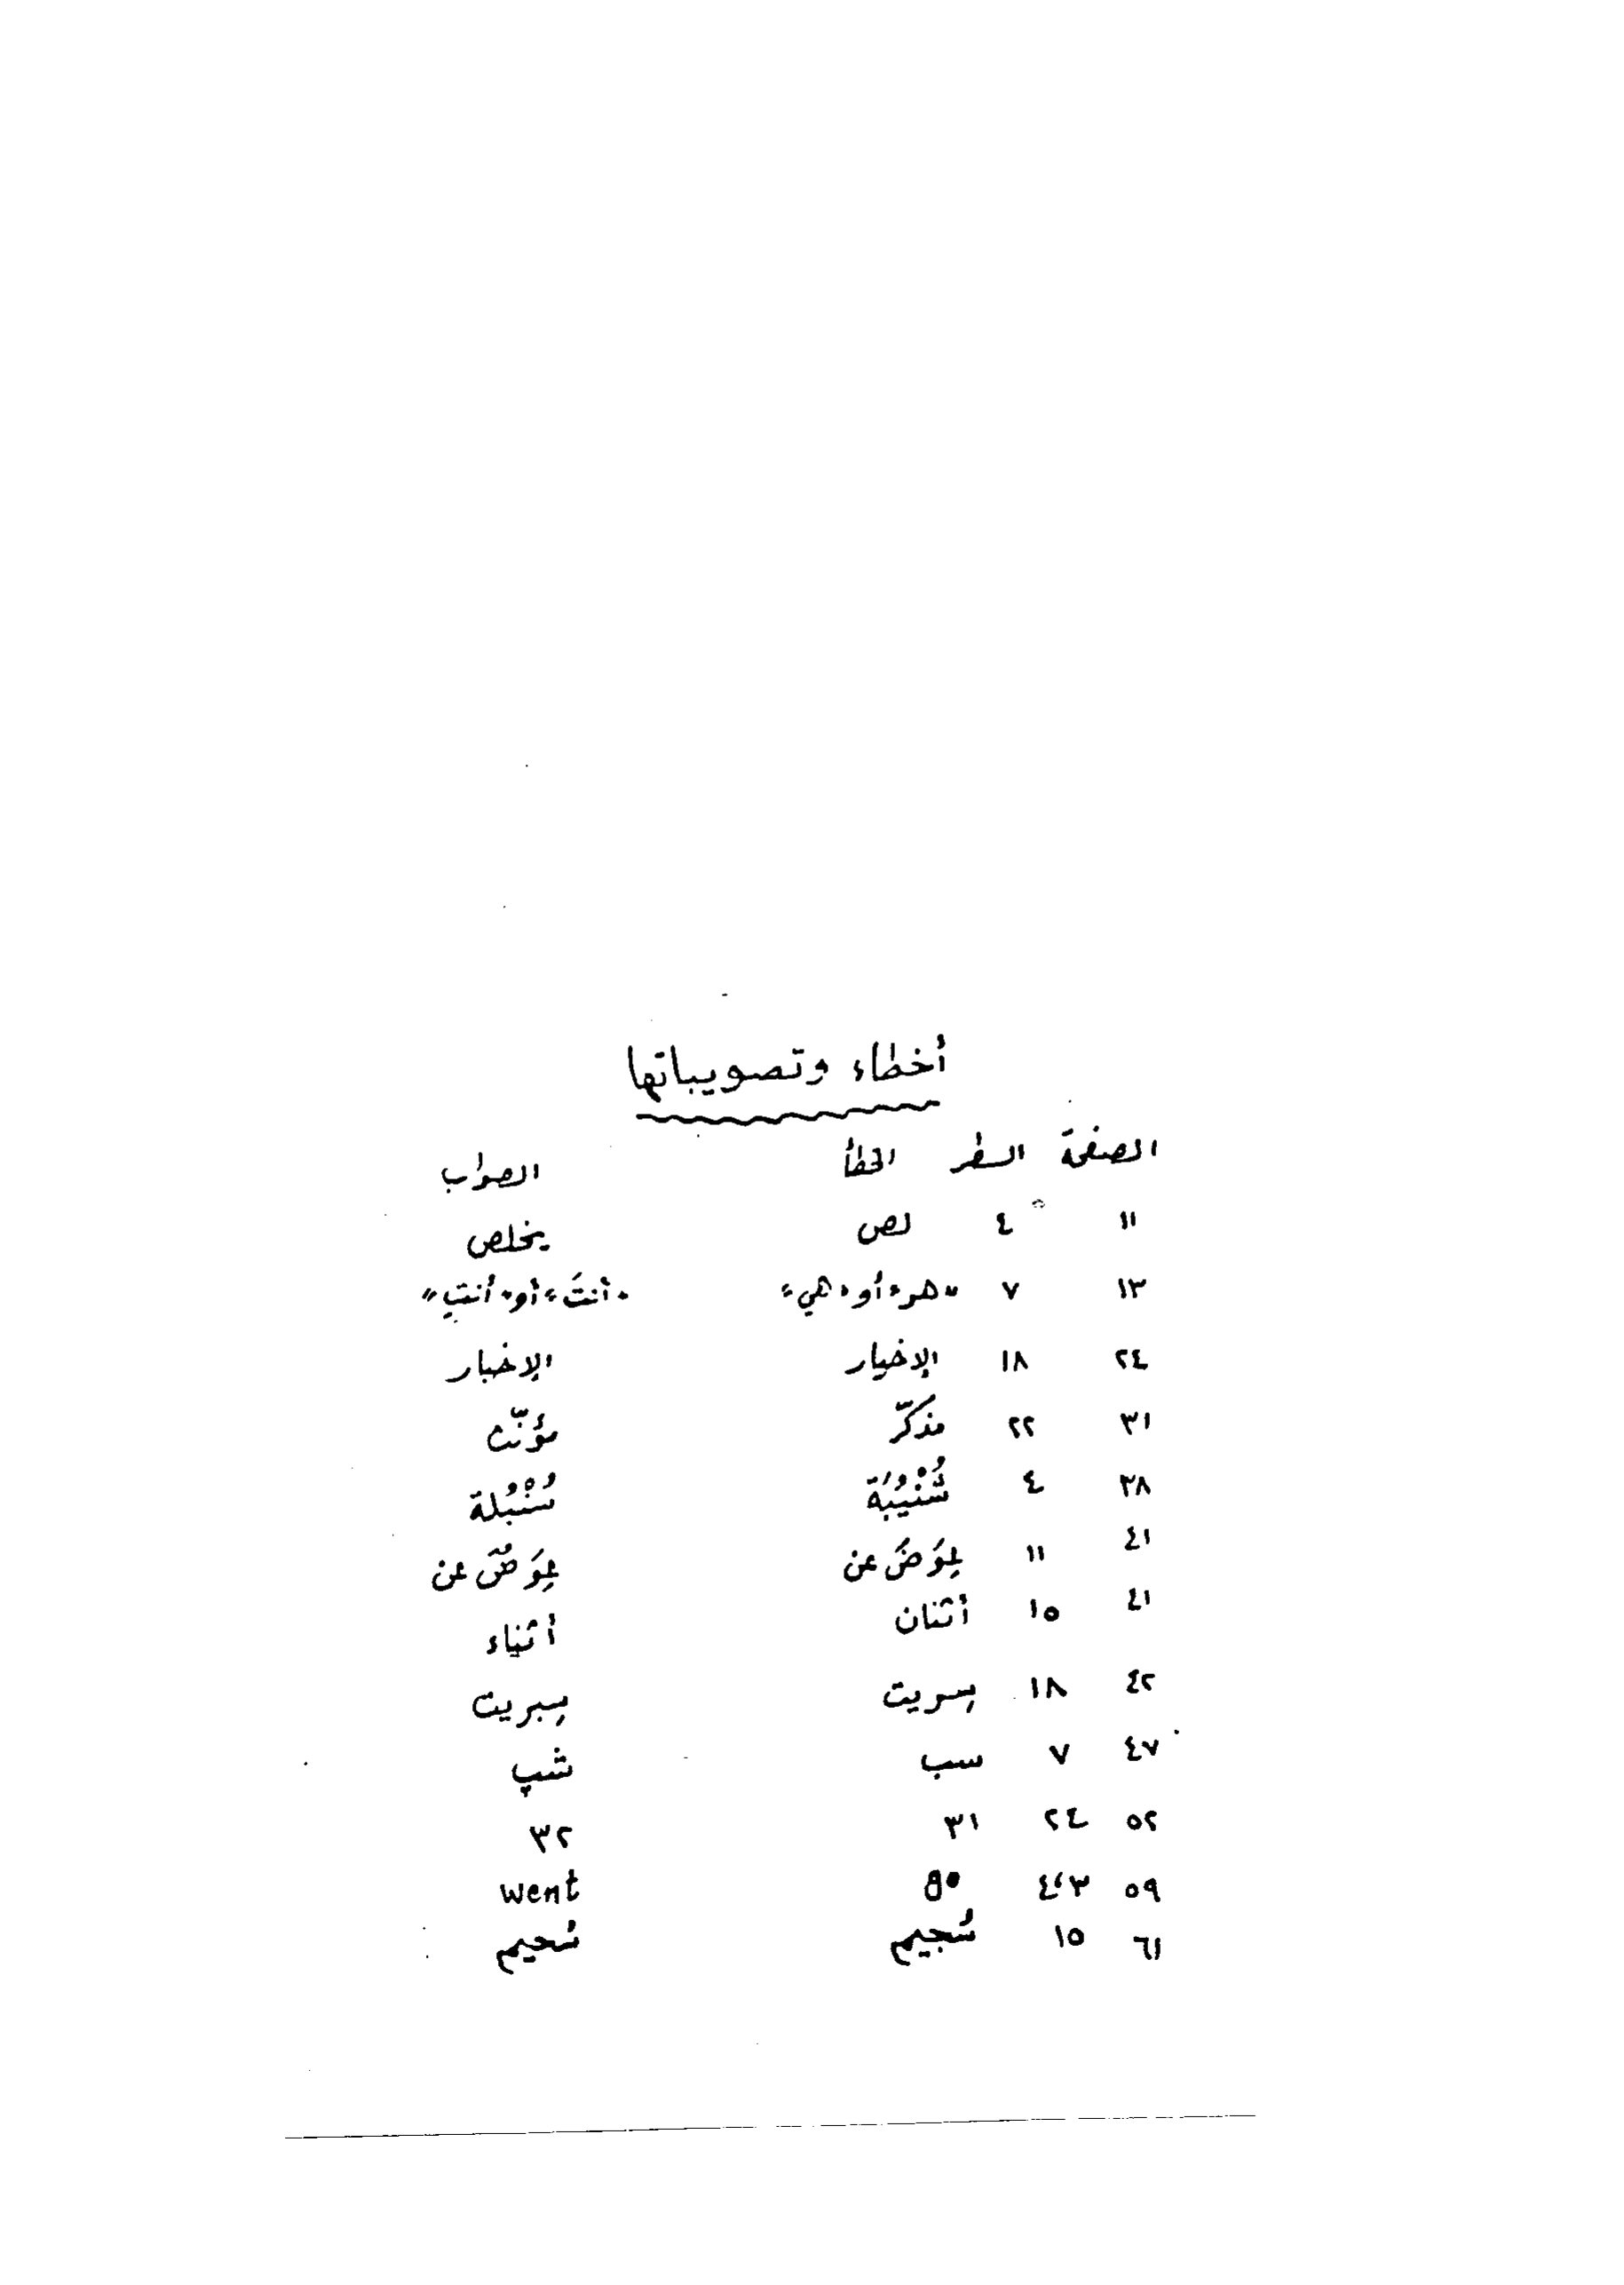 أخطاء وتصويباتها
الصفحة السطر الخطأ الصواب
١١ ٤ لص يخلص
١٣ ٧ "هو" أو "هي" "أنتَ" أو "أنتِ"
٢٤ ١٨ الإخيار الإخبار
٣١ ٢٢ مذكّر مؤنّث
٣٨ ٤ سُنْبُلة
٤١ ١١ عِوَضَ عن عِوَضٌ عن
٤١ ١٥ أثنان أثناء
٤٢ ١٨ سريت سبريت
٤٧ ٧ سب شپ
٥٢ ٢٤ ٣١ ٣٢
٥٩ ٣،٤ went
٦١ ١٥ سُجيم سُحيم